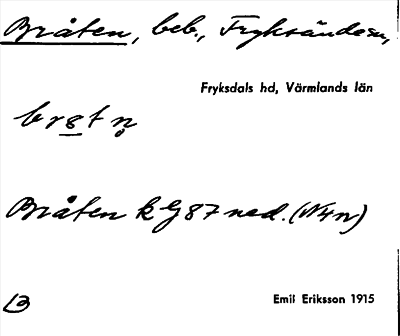 Bråten, beb., Fryksände sn,
Fryksdals hd, Värmlands län
Bråten k G 87 ned. (N4n)
Emil Eriksson 1915